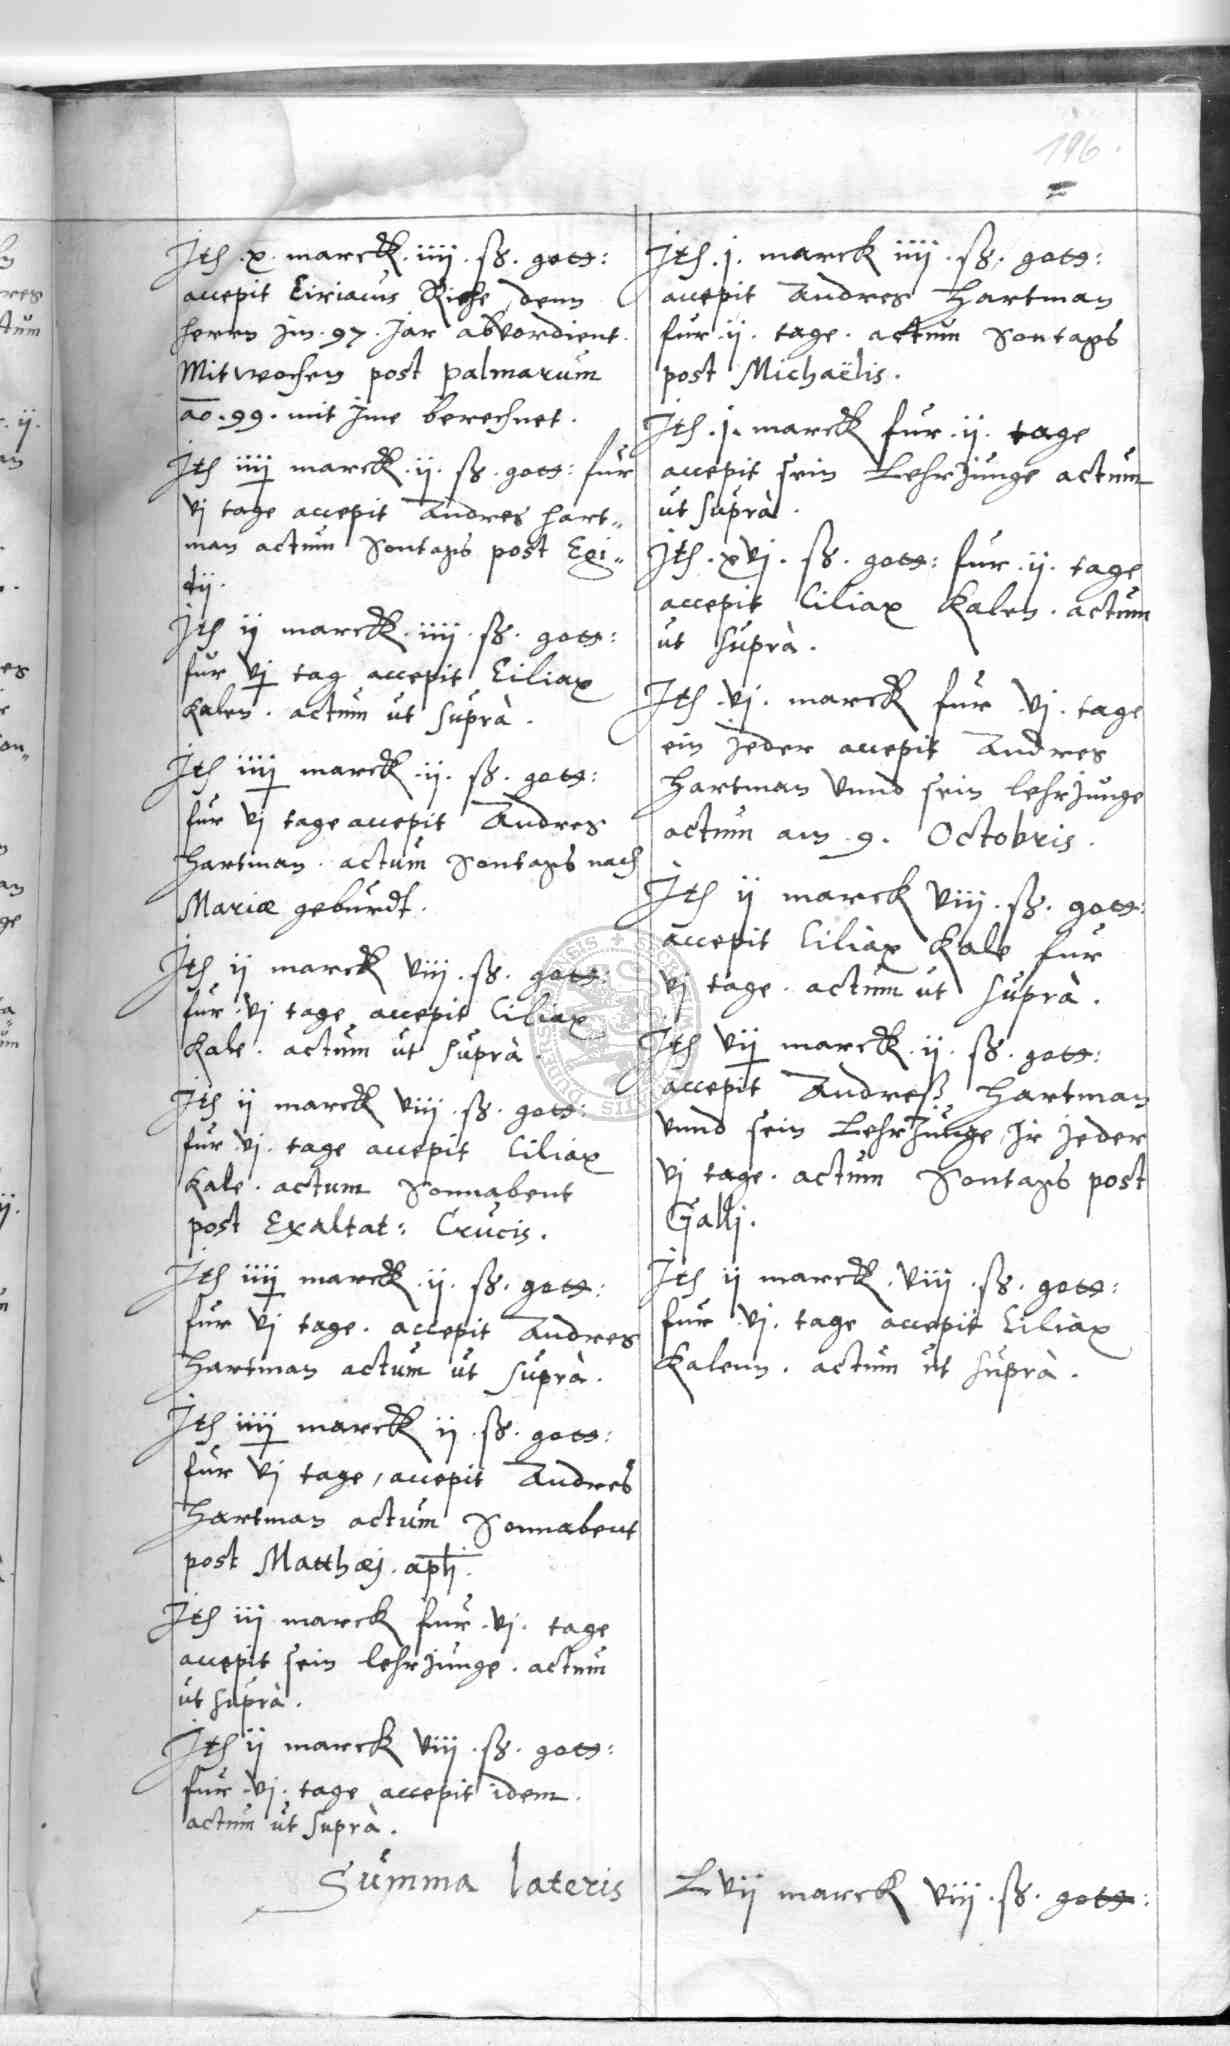 196.
Jtem .x. marck .iiij. ß. gott:
accepit Ciriacus Riehe, denn
herrn jm .97. Jar abvordient.
Mitwochen post palmarum
ao .99. mit jme berechnet.
Jtem iiij marck .ij. ß. gott: fur
vj tage accepit Andres Hart„
man actum Sontags post Egi„
dij.
Jtem ij marck .iiij. ß. gott:
fur vj tag accepit Ciliax
Kalen. actum ut suprà.
Jtem iiij marck .ij. ß. gott:
fur vj tage accepit Andres
Hartman. actum Sontags nach
Mariæ geburdt.
Jtem ij marck viij. ß. gott:
fur .vj tage accepit Ciliax
Kale. actum ut suprà.
Jtem ij marck viij. ß. gott:
fur .vj. tage accepit Ciliax
Kale. actum Sonnabent
post Exaltat: Crucis.
Jtem iiij marck .ij. ß. gott:
fur vj tage. accepit Andres
Hartman actum ut suprà.
Jtem iiij marck ij. ß. gott:
fur vj tage, accepit Andres
Hartman actum Sonnabent
post Matthæj. aplj.
Jtem iij marck fur .vj. tage
accepit sein lehrjunge. actum
ut suprà.
Jtem ij marck viij. ß. gott:
fur .vj. tage accepit idem.
actum ut suprà.
Jtem .j. marck iiij. ß. gott:
accepit Andres Hartman
fur .ij. tage. actum Sontags
post Michaëlis.
Jtem .j. marck fur .ij. tage
accepit sein Lehrjunge actum
ut suprà.
Jtem .xvj. ß. gott: fur .ij. tage
accepit Ciliax Kalen. actum
ut suprà.
Jtem .vj. marck fur .vj. tage
ein jeder accepit Andres
Hartman vnnd sein lehrjunge
actum am .9. Octobris.
Jtem ij marck viij. ß. gott:
accepit Ciliax Kale fur
vj tage. actum ut suprà.
Jtem vij marck .ij. ß. gott:
accepit Andreß Hartman
vnnd sein Lehrjunge, jr jeder
vj tage. actum Sontags post
Gallj.
Jtem ij marck .viij. ß. gott:
fur .vj. tage accepit Ciliax
Kalenn. actum ut suprà.
Summa lateris Lvij marck viij. ß. gott: